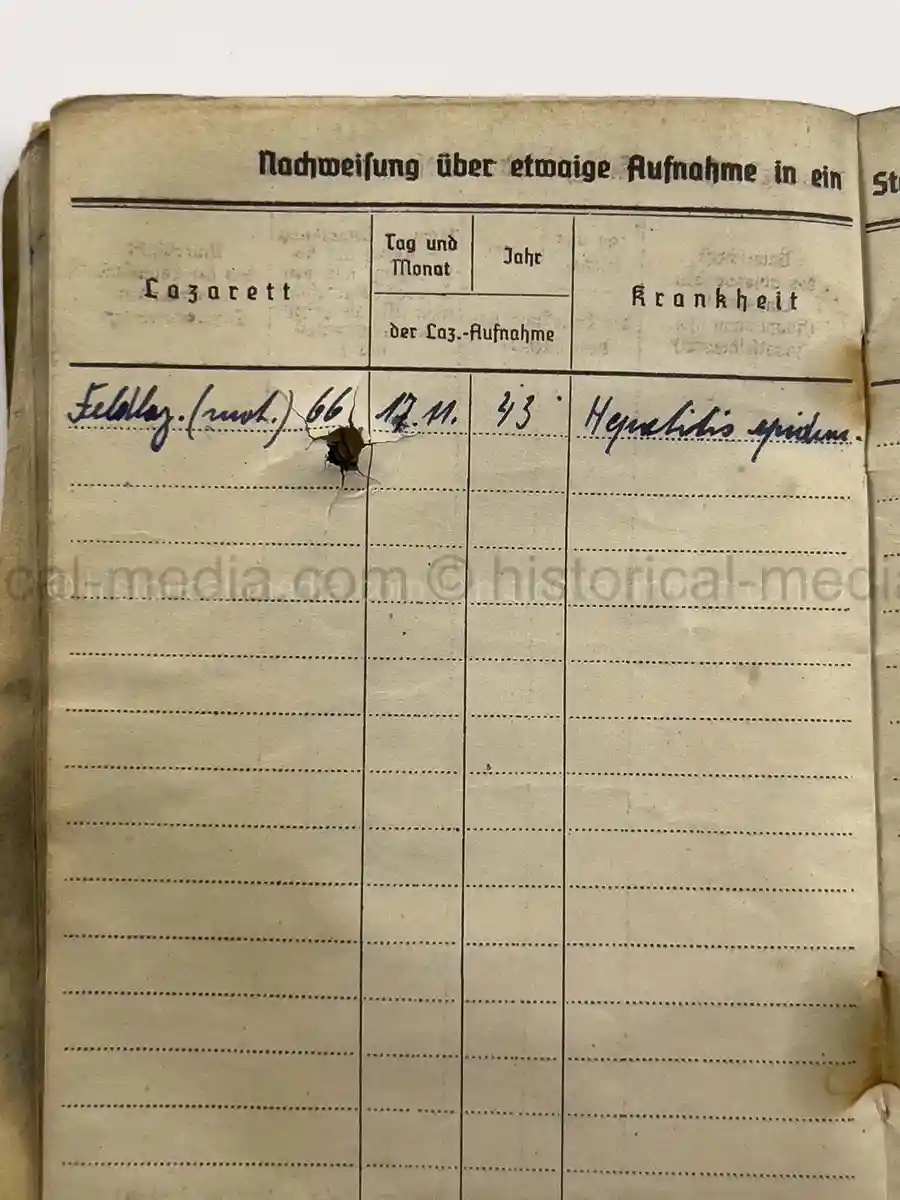 Nachweisung über etwaige Aufnahme in ein St
Lazarett
Tag und Monat
Jahr
der Laz.-Aufnahme
Krankheit
Feldlaz. (mot.) 66 17.11. 43 Hepatitis epidem.
cal-media.com © historical-media